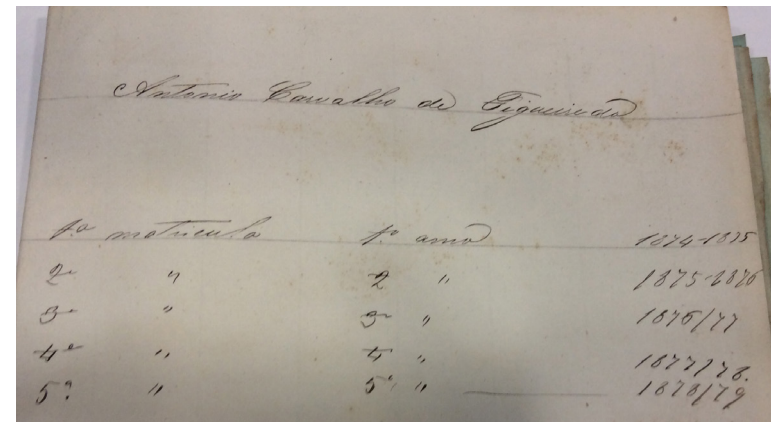 Antonio Carvalho de Figueiredo
1.a matricula 1.o anno 1874-1875
2a " 2 " 1875-1876
3a " 3o " 1876/77
4a " 4 " 1877/78.
5a " 5o " 1878/79